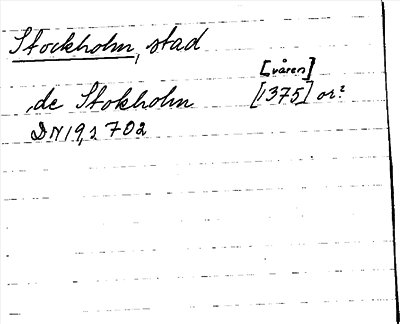 Stockholm, stad
[våren]
de Stokholm [1375] or?
DN 19, s 702